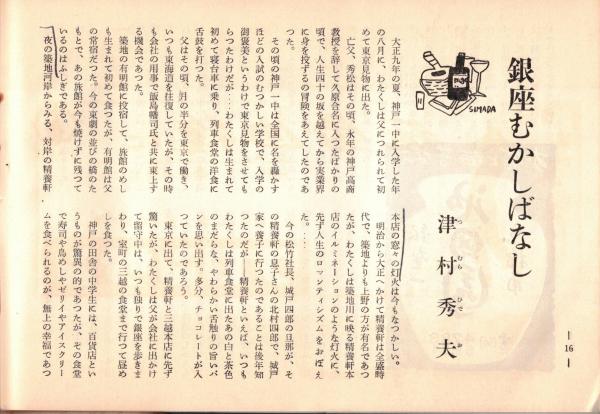 銀座むかしばなし
津村秀夫
つむらひでお
SIMADA
大正九年の夏、神戸一中に入学した年
の八月に、わたくしは父につれられて初
めて東京見物に出た。
亡父、秀松はその頃、永年の神戸高商
教授を辞して久原合名に入つたばかりの
頃で、人生四十の坂を越えてから実業界
に身を投ずるの冒険をあえてしたのであ
つた。
その頃の神戸一中は全国に名を轟かす
ほどの入試のむつかしい学校で、入学の
御褒美というわけで東京見物をさせても
らつたわけだが‥‥わたくしは生まれて
初めて寝台車に乗り、列車食堂の洋食に
舌鼓を打つた。
父はその頃、月の半分を東京で働き、
いつも東海道を往復していたが、その時
も会社の用事で飯島幡司氏と共に東上す
る機会であつた。
築地の有明館に投宿して、旅館のめし
も生まれて初めて食つたが、有明館は父
の常宿だつた。今の東劇の並びの橋のた
もとで、あの旅館が今も焼けずに残つて
いるのはふしぎである。
夜の築地河岸からみる、対岸の精養軒
本店の窓々の灯火は今もなつかしい。
明治から大正へかけて精養軒は全盛時
代で、築地よりも上野の方が有名であつ
たが、わたくしは築地川に映る精養軒本
店のイルミネーションのような灯火に、
先ず人生のロマンティシズムをおぼえ
た。
今の松竹社長、城戸四郎の旦那が、そ
の精養軒の息子さんの北村四郎で、城戸
家へ養子に行つたのであることは後年知
つたのだが――精養軒といえば、いつも
わたくしは列車食堂に出たあの白と茶色
のまだらな、やわらかい舌触りの旨いパ
ンを思い出す。多分、チョコレートが入
つていたのであろう。
東京に出て、精養軒と三越本店に先ず
驚いたが、わたくしは父が会に出かけ
て留守中は、いつも独りで銀座を歩きま
わり、室町の三越の食堂まで行つて昼め
しを食つた。
神戸の田舎の中学生には、百貨店とい
うものが驚異の的であつたが、その食堂
で寿司や鳥めしやゼリイやアイスクリー
ムを食べられるのが、無上の幸福であつ
―16―